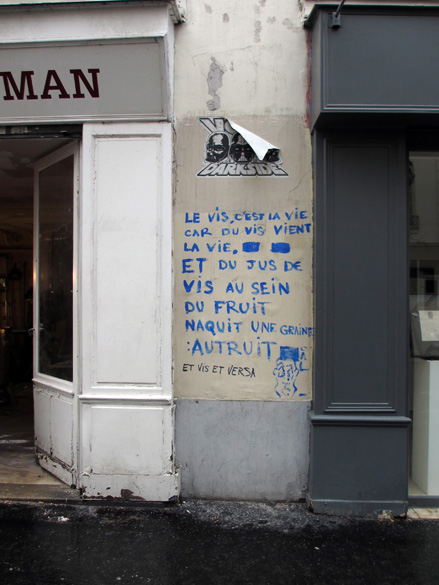 MAN
DARKSIDE
LE VIS, C'EST LA VIE
CAR DU VIS VIENT
LA VIE,
ET DU JUS DE
VIS AU SEIN
DU FRUIT
NAQUIT UNE GRAINE
:AUTRUIT
ET VIS ET VERSA